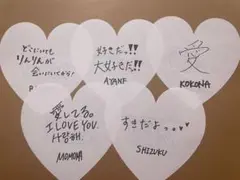 どこにいても
りんりんが
会いにいくから!
好きだっ!!
大好きだ!!
AYANE
愛
KOKONA
愛してる。
I LOVE YOU.
사랑해.
MOMONA
すきだよっ。♥
SHIZUKU